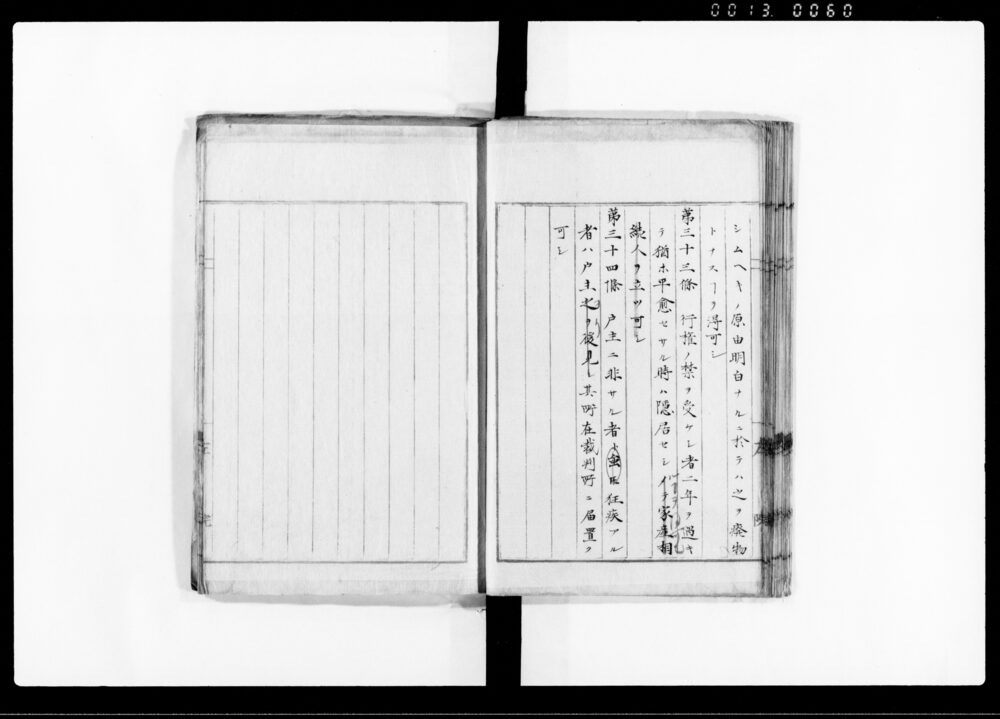 0013 0060
シムヘキノ原由明白ナルニ於テハ之ヲ癈物
トナスヿヲ得可シ
第三十三條 行権ノ禁ヲ受ケシ者二年ヲ過キ
テ猶ホ早愈セサル時ハ隠居セシ 家産相
続人ヲ立ツ可シ
第三十四條 戸主ニ非サル者 狂疾アル
者ハ戸主之ヲ後見シ其所在裁判所ニ届置ク
可シ
左院